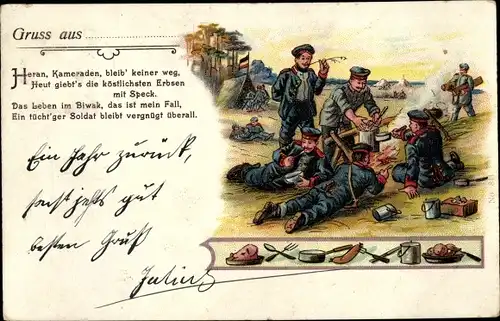 Gruss aus
Heran, Kameraden, bleib' keiner weg,
Heut giebt's die köstlichsten Erbsen
mit Speck.
Das Leben im Biwak, das ist mein Fall,
Ein tücht'ger Soldat bleibt vergnügt überall.
Ein Jahr zurück,
jetzt gut
besten Gruß